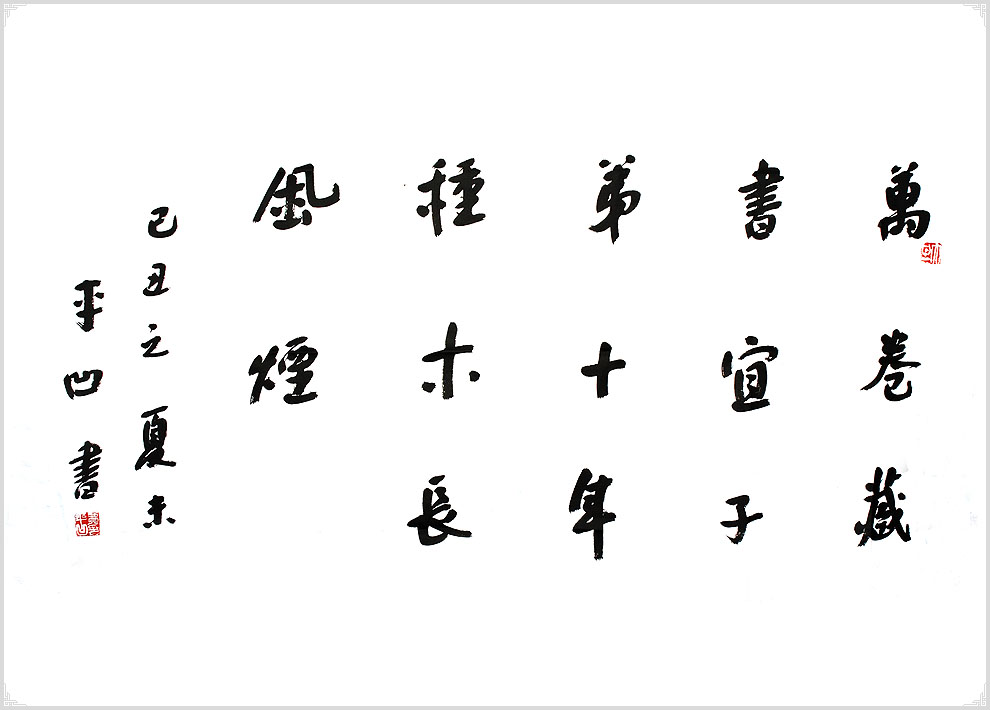 萬卷藏
書宜子
弟十年
種木長
風煙
己丑之夏末
平凹書